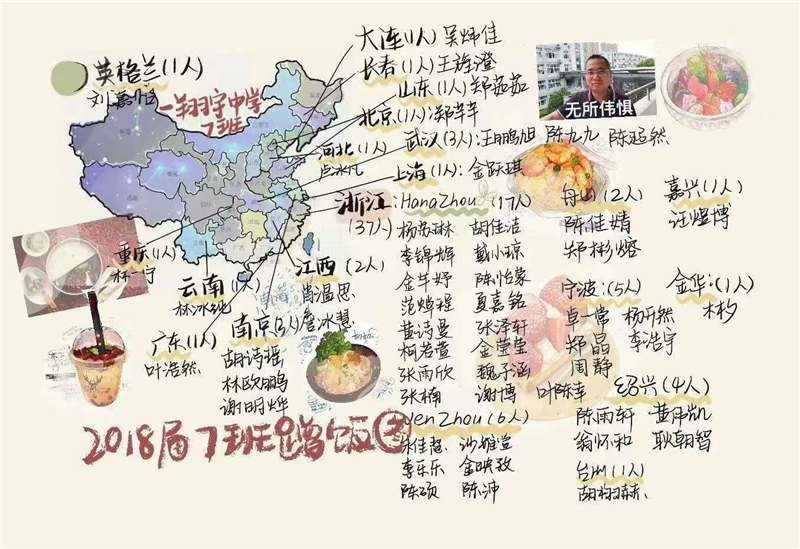 大连(1人) 吴炜佳
英格兰(1人)
长春(1人)王旌澄
山东(1人)郑茹茹
一翔宇中学
7班
北京(1人):郑芊芊
无所伟惧
武汉(3人):王鹏旭 陈九九 陈廷然
河北(1人)
卢冰凡
上海(1人):金跃琪
浙江:
(37人)
HangZhou (17人)
杨芳琳 胡佳洁
李锦辉 戴小琼
金芊妤 陈怡豪
范焯程 夏嘉铭
黄诗曼 张泽轩
柯若萱 金莹莹
张雨欣 魏子涵
张楠 谢博 叶陈幸
舟山(2人)
陈佳婧
郑彬熔
嘉兴(1人)
汪煜博
宁波:(5人)
卓一常 杨开然
郑晶 李浩宇
周静
金华:(1人)
林杉
绍兴(4人)
陈雨轩 黄月凯
翁怀和 耿朝智
台州(1人)
WenZhou(6人)
朱佳慧 沙雄堂
李乐乐 金映孜
陈硕 陈沛
重庆(1人)
林一宁
云南(1人)
江西(2人)
肖温思
詹冰慧
广东(1人)
叶浩然
南京(3人)
胡诗瑶
林欧鹏
谢明烨
2018届7班蹭饭图